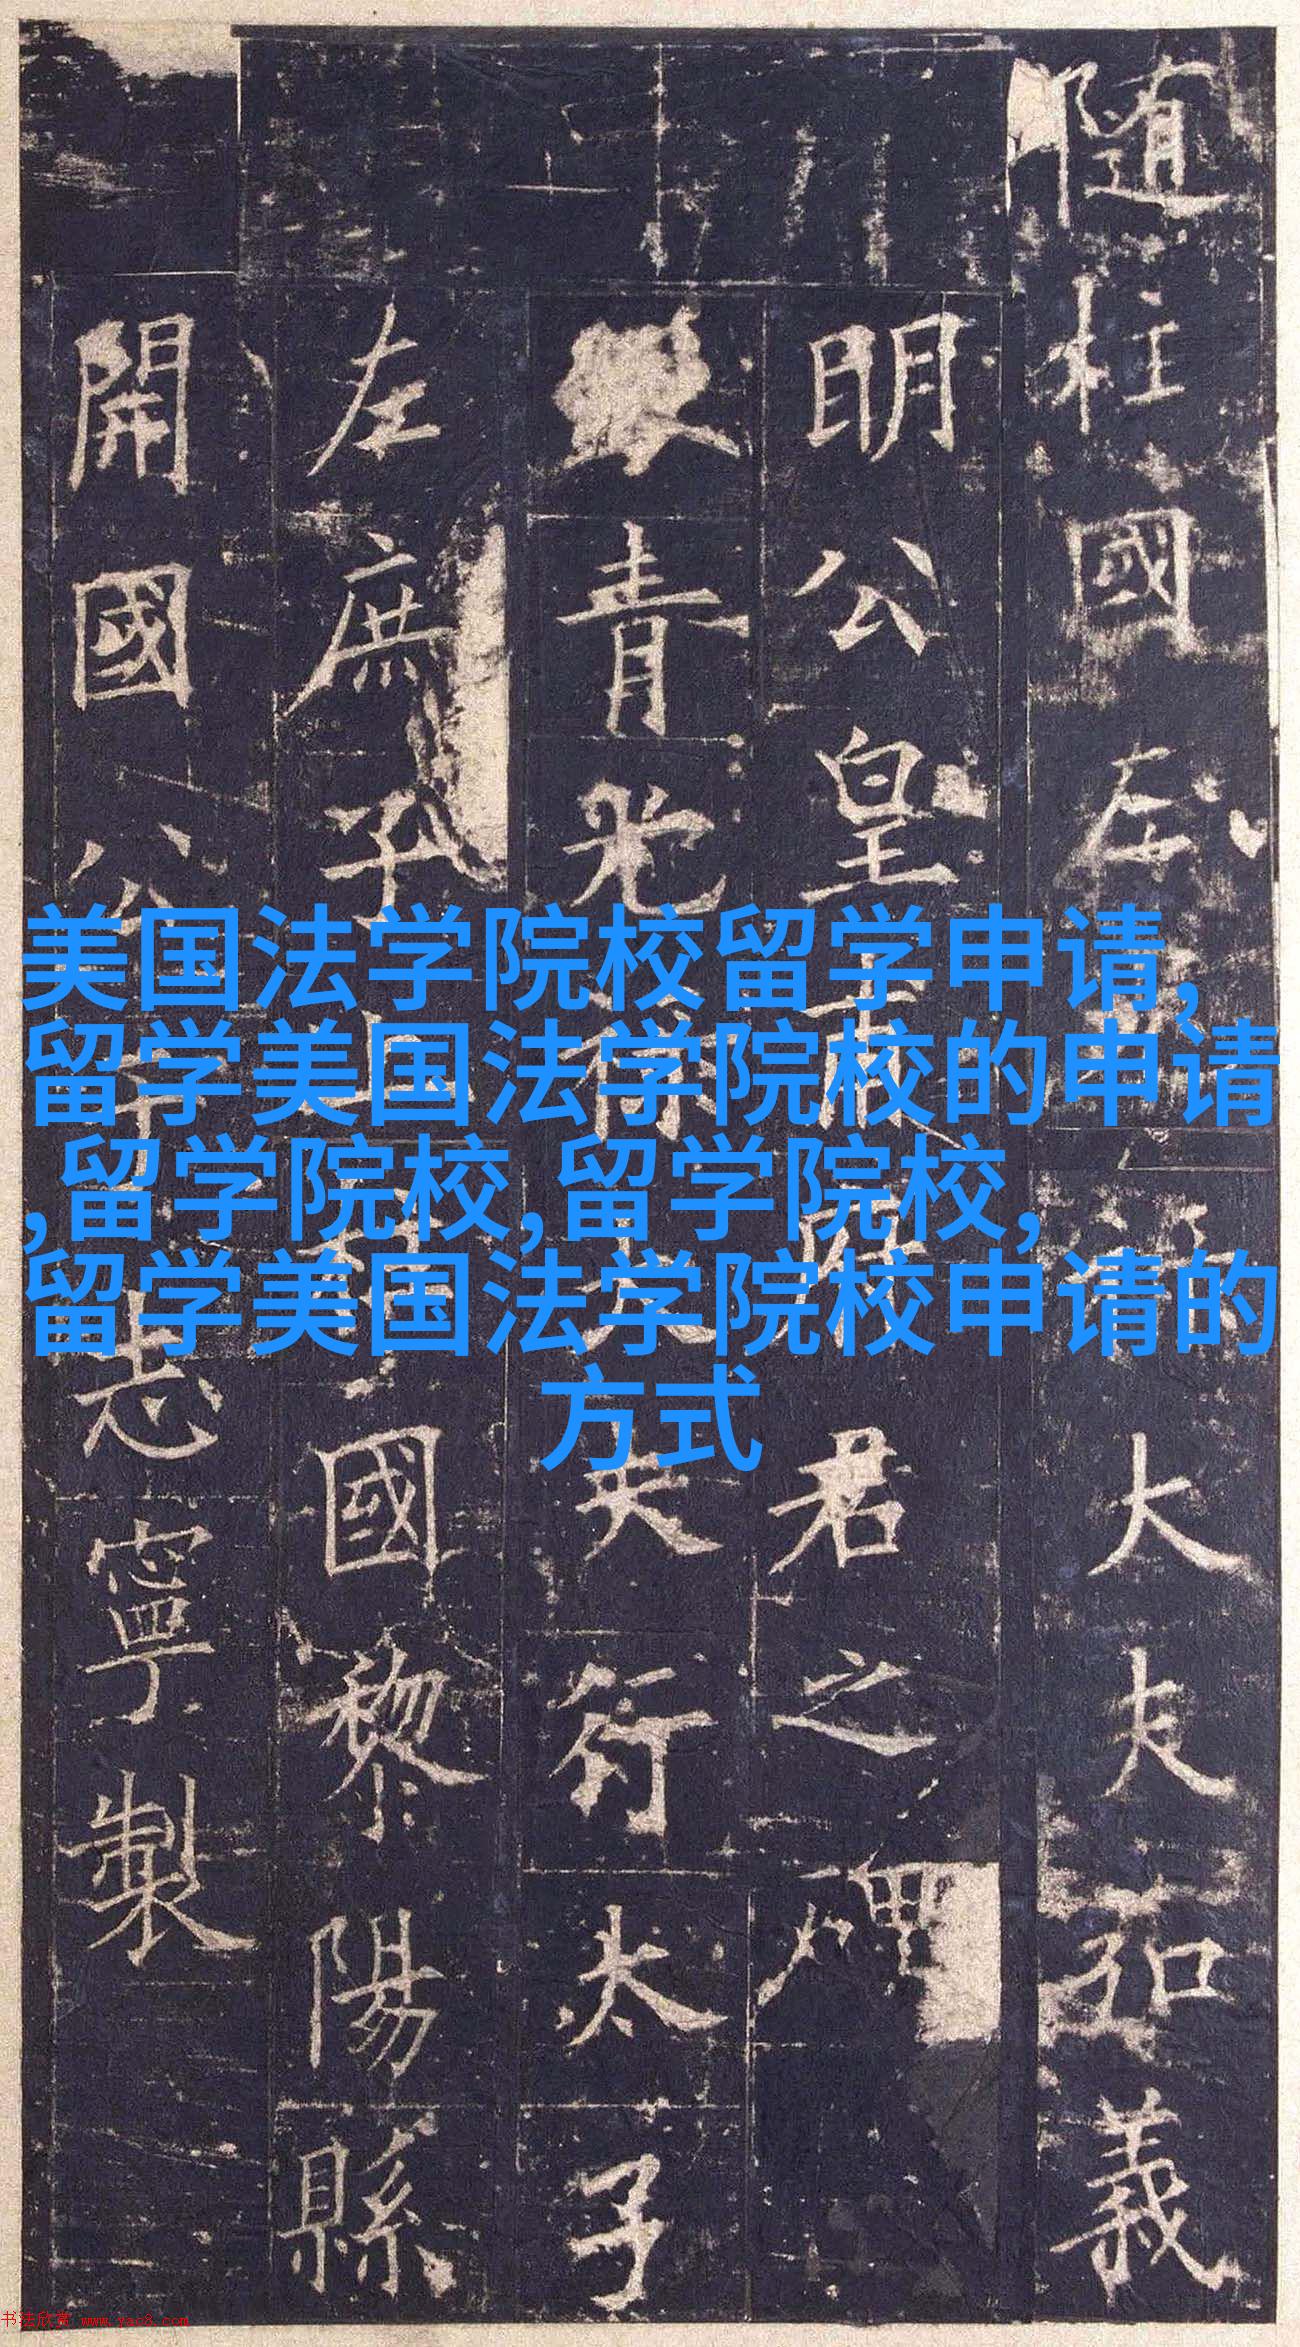 随柱國左大夫弘義
明公皇府君之碑
銀青光祿大夫行太子
左庶子上柱國黎陽縣
開國公于志寧製
美国法学院校留学申请,
留学美国法学院校的申请
,留学院校,留学院校,
留学美国法学院校申请的
方式
书法欣赏 www.yac8.com